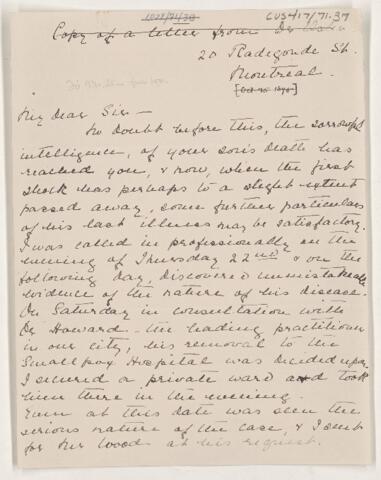 CUS417/71.37
Copy of a letter from Dr
20 Radegonde St.
Montreal.
My dear Sir—
No doubt before this, the sorrowful
intelligence, of your son's death has
reached you, & now, when the first
shock has perhaps to a slight extent
passed away, some further particulars
of his last illness may be satisfactory.
I was called in professionally on the
evening of Thursday 22nd & on the
following day, discovered unmistakeable
evidence of the nature of his disease.
On Saturday in consultation with
Dr Howard - the leading practitioner
in our city, his removal to the
Smallpox Hospital was decided upon.
I secured a private ward and took
him there in the evening.
Even at this date was seen the
serious nature of the case, & I sent
for Mr Wood at his request.